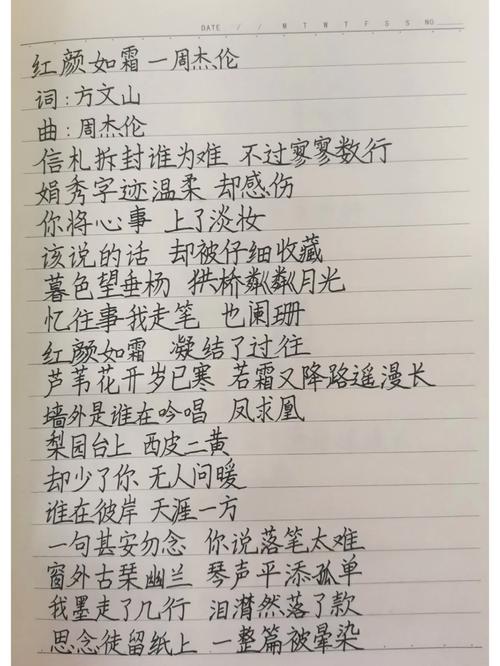 DATE / / M T W T F S S NO.
红颜如霜一周杰伦
词:方文山
曲:周杰伦
信札拆封谁为难 不过寥寥数行
娟秀字迹温柔 却感伤
你将心事 上了淡妆
该说的话 却被仔细收藏
暮色望垂杨 拱桥粼粼月光
忆往事我走笔 也阑珊
红颜如霜 凝结了过往
芦苇花开岁已寒 若霜又降路遥漫长
墙外是谁在吟唱 凤求凰
梨园台上 西皮二黄
却少了你 无人问暖
谁在彼岸 天涯一方
一句甚安勿念 你说落笔太难
窗外古琹幽兰 琴声平添孤单
我墨走了几行 泪潸然落了款
思念徒留纸上 一整篇被晕染